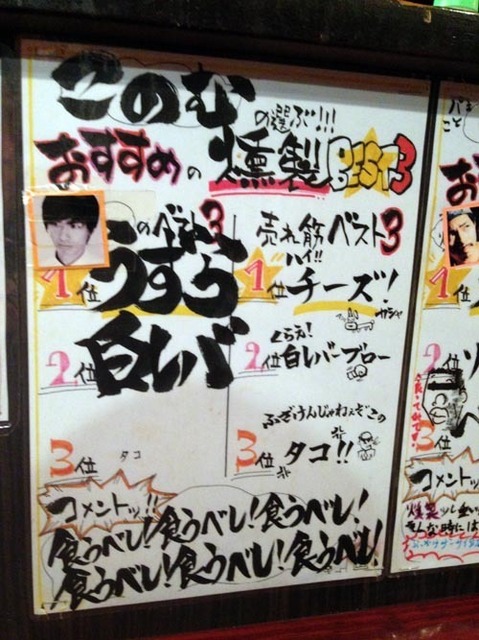 このむ
の選ぶ!!!
おすすめの燻製BEST3
のベスト3
1位 うずら
2位 白レバ
3位 タコ
売れ筋ベスト3
ハイ!!
1位 チーズ!
くらえ!
2位 白レバーブロー
ふざけんじゃねぇぞこの
3位 タコ!!
コメントッ!!
食うべし!食うべし!食うべし!
食うべし!食うべし!食うべし!
2
3位
コメントッ
燻製
そんな時には